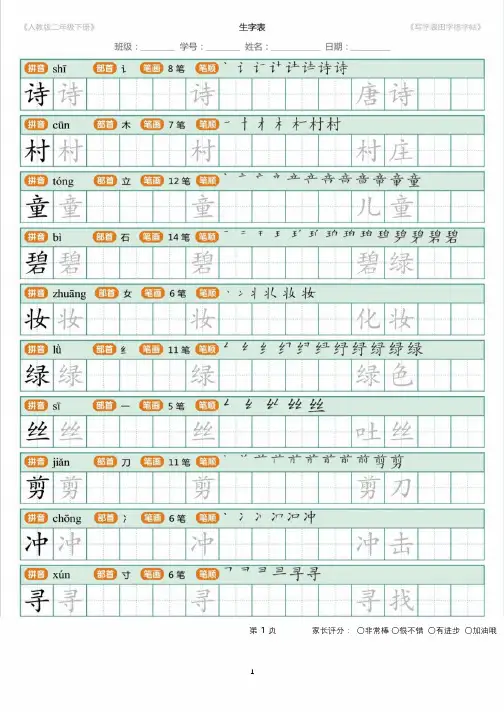 《人教版二年级下册》 生字表 《写字表田字格字帖》
班级：______ 学号：______ 姓名：______ 日期：______
拼音 shī 部首 讠 笔画 8 笔 笔顺
诗 诗 诗 唐 诗
拼音 cūn 部首 木 笔画 7 笔 笔顺
村 村 村 村 庄
拼音 tóng 部首 立 笔画 12 笔 笔顺
童 童 童 儿 童
拼音 bì 部首 石 笔画 14 笔 笔顺
碧 碧 碧 碧 绿
拼音 zhuāng 部首 女 笔画 6 笔 笔顺
妆 妆 妆 化 妆
拼音 lǜ 部首 纟 笔画 11 笔 笔顺
绿 绿 绿 绿 色
拼音 sī 部首 一 笔画 5 笔 笔顺
丝 丝 丝 吐 丝
拼音 jiǎn 部首 刀 笔画 11 笔 笔顺
剪 剪 剪 剪 刀
拼音 chōng 部首 冫 笔画 6 笔 笔顺
冲 冲 冲 冲 击
拼音 xún 部首 寸 笔画 6 笔 笔顺
寻 寻 寻 寻 找
第 1 页 家长评分： ○非常棒 ○很不错 ○有进步 ○加油哦
1